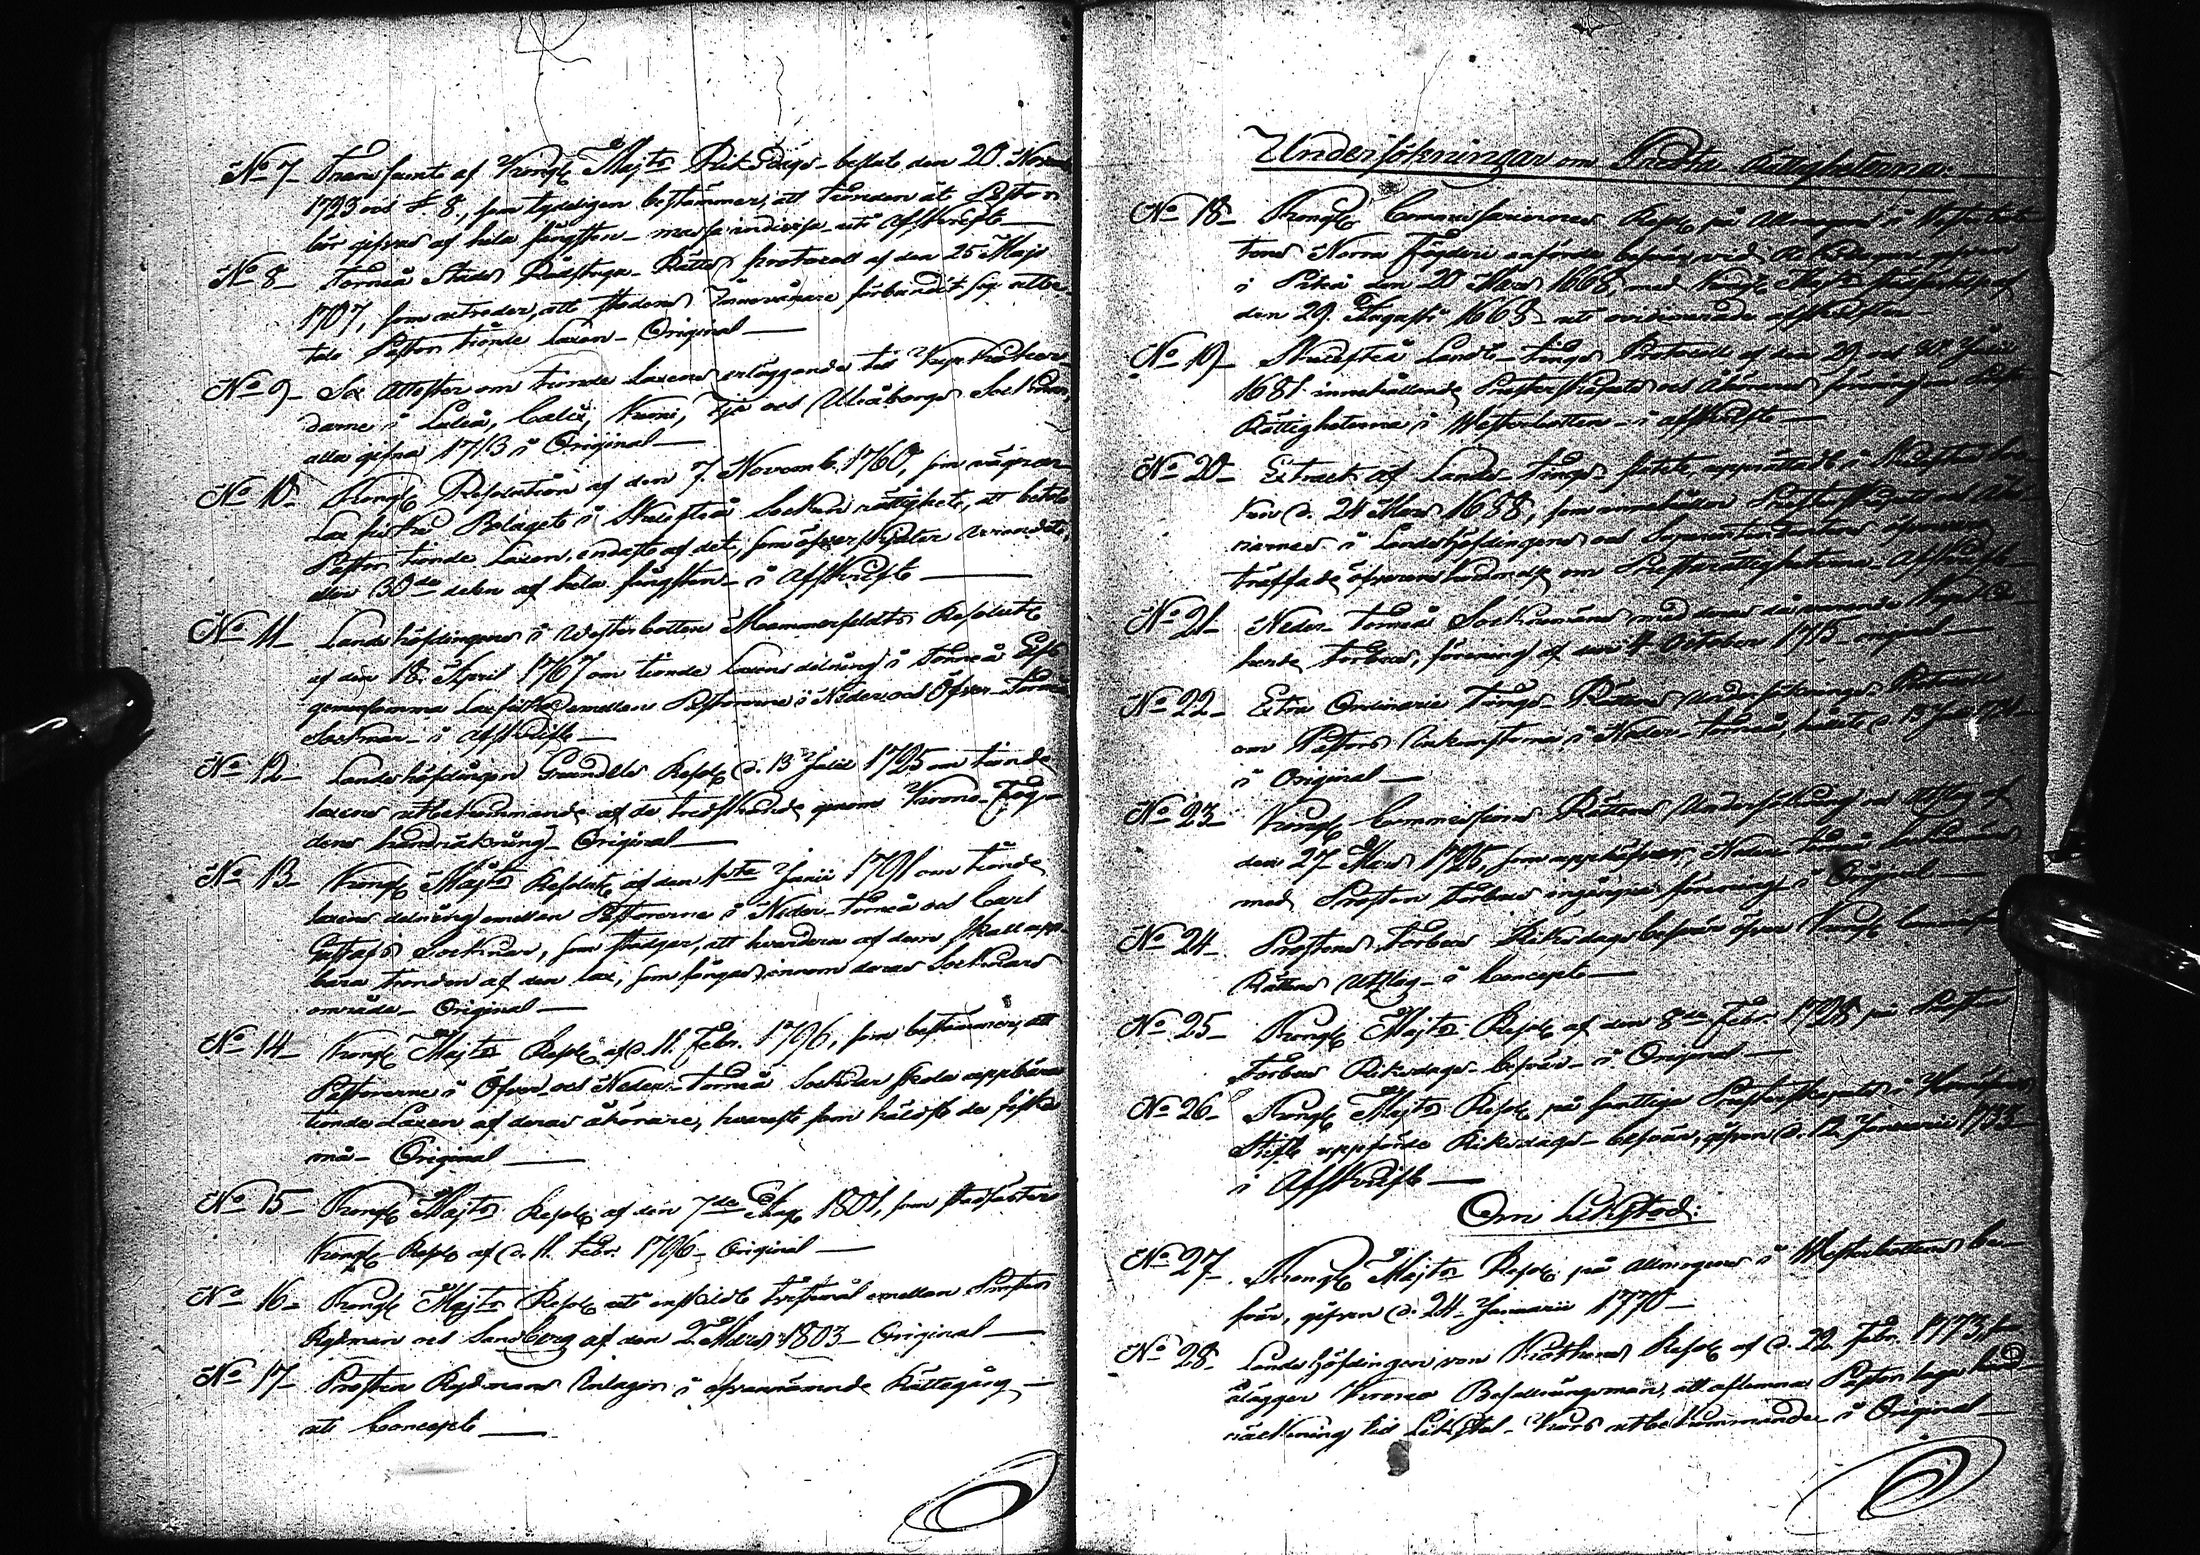 No 7 Transsumt af Kongl Majts Riksdags beslut den 20. Novemb
1723 och §. 8., som tydeligen bestämmer, att tionden åt Pastor
bör gifvas af hela fångsten massa indivisa uti Afskrift
No 8 Torneå Stads Rådstugu Rätts protocoll af den 25 Maji
1707, som utreder, att Stadens Innevånare förbundit sig att be-
tala Pastor tionde laxen Original
No 9 Sex Attester om tionde laxens erläggande till Kyrkoherr-
darne i Luleå, Calix, Kemi, Ijo och Uleåborgs Socknar,
alla gifna 1713 i Original
No 10 Kongl Resolution af den 7. Novemb. 1760, som vägrar
Laxfiske Bolaget i Skellefteå Socken rättighet, att betala
Pastor tionde Laxen, endast af det, som öfverskjuter Kronans
30de delen af hela fångsten i Afskrift
No 11 Landshöfdingens i Westerbotten Mammerfeldts Resolut
af den 18. April 1767 om tionde laxens delning i Torneå Elfs
gemensamma Laxfiske emellan Pastorerne i Neder och Öfver Torneå
Socknar i Afskrift
No 12 Landshöfdingen Resol d. 13 Julii 1795 om tionde
laxens utbekommande af de tredskande genom Krono Fog-
dens handräkning Original
No 13 Kongl Majts Resolut af den 1ste Junii 1791 om tionde
laxens delning emellan Pastorerne i Neder Torneå och Carl
Gustafs Socknar, som stadgar, att hvardera af dem skall upp-
bära tionden af den lax, som fångas innom deras Socknars
område Original
No 14 Kongl Majts Resol af d. 11. Febr. 1796, som bestämmer, att
Pastorerne i Öfver och Neder Torneå Socknar skola uppbära
tionde Laxen af deras åhörare, hvarest som hälst de fiska
må Original
No 15 Kongl Majts Resol af den 7de Maj 1801, som stadfäster
Kongl Resol af d. 11. Febr. 1796 Original
No 16 Kongl Majts Resol uti enskildt tvistemål emellan Prosten
Rydman och Sandberg af den 2 Mars 1803 Original
No 17 Prosten Rydmans Inlagor i ofvannämnde Rättegång
uti Concept
Undersökningar om Prästa Rättigheterna:
No 18 Kongl Commissariernas Resol på Allmogens i Westerbot-
tens Norra Fögderi anförde besvär vid gifven
i Piteå den 20 Mars 1668, med Kongl Majts stadfästelse af
den 29. Augusti 1668 uti afskrifter
No 19 Skellefteå Landt-tings Protocoll af den 29 och 30 Junii
1681 innehållande Presterskapets och Åhörarnes förening om Prest
Rättigheterna i Westerbotten i afskrift
No 20 Extract af Lands tings upprättadt i Skellefteå
d. 24 Mars 1688, som innehåller Presterskapets och Åhö-
rarnes i Landshöfdingens och Superintendentens öfvervaro
träffade öfverenskommelse om Presterättigheterna Afskrift
No 21 Neder Torneå Sockenmäns med deras då varande Kyrko-
herde Forbus, förening af den 4 October 1715 original
No 22 Extra Ordinarie Tings Rättens Undersöknings
om Pastors Inkomsterna i Neder Torneå, hållit d. 13 Julii
i Original
No 23 Kongl Commissions Rättens Undersökning och Utslag af
den 27 Mars 1725, som upphäfver Neder Torneå
med Prosten Forbus ingångna förening i Original
No 24 Prostens Forbus Riksdags besvär öfver Kongl Commiss
Rättens Utslag i Concept
No 25 Kongl Majts Resol af den 8de Febr. 1728 på Prosten
Forbus Riksdags besvär i Original
No 26 Kongl Majts Resol på samtliga Presterskapets i Hernösand
Stift uppförde Riksdags besvär, gifven d. 12 Januarii 1733
i Afskrift
Om Likstod:
No 27 Kongl Majts Resol på Allmogens i Westerbottens be-
svär, gifven d. 24 Januarii 1770
No 28 Landshöfdingen von Resol af d. 22 Febr. 1773,
ålägger Kronens Befallningsman, att aflemna Pastor laga hand-
räckning till Likstol Kors utbekommande i Original